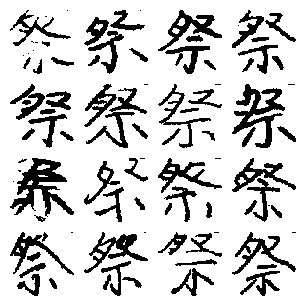 祭祭祭祭
祭祭祭祭
祭祭祭祭
祭祭祭祭